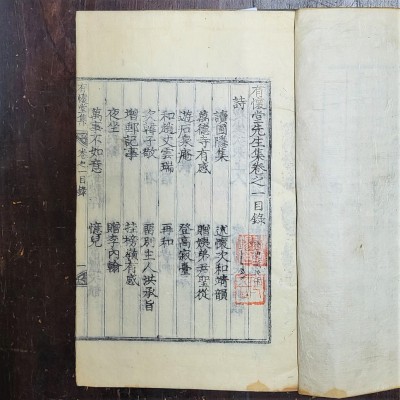 有懷堂先生集卷之一目錄
詩
讀圃隱集 述懷次和靖韻
萬德寺有感 贈姨弟尹聖從
遊石 庵 登高寂臺
和趙丈雲瑞 再和
次 子敬 留別主人洪承旨
增郵記事 掛榜嶺有感
夜坐 贈李內翰
萬事不如意 憶兒
有懷堂集 卷之一目錄 一